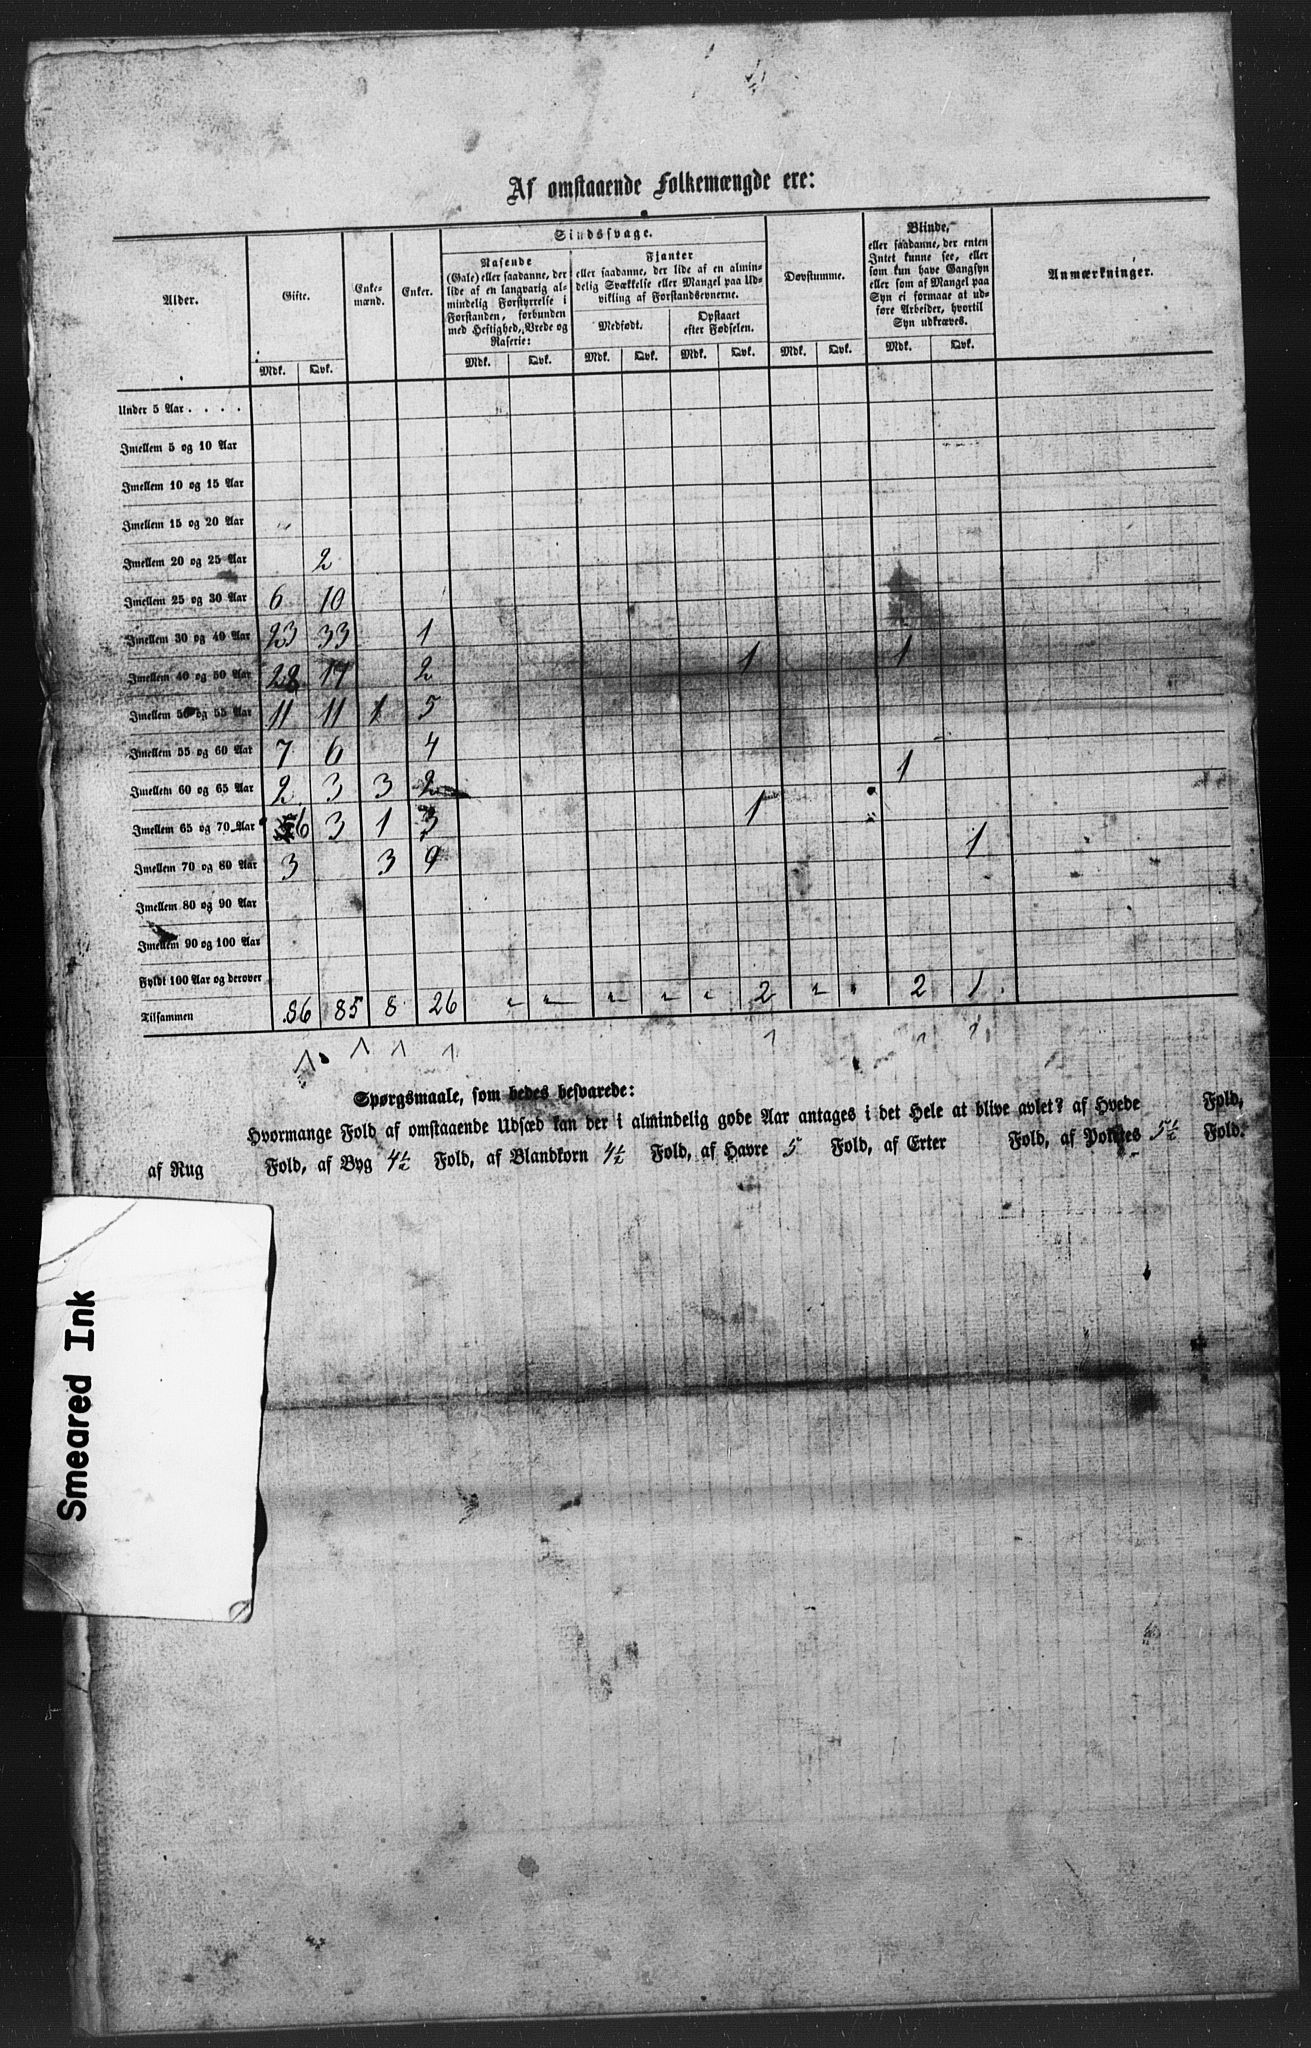 Af omstaaende Folkemængde ere:
Alder.
Gifte.
Mdk. Qvk.
Enke-
mænd.
Enker.
Sindssvage.
Rasende
(Gale) eller saadanne, der
lide af en langvarig al-
mindelig Forstyrrelse i
Forstanden, forbunden
med Heftighed, Vrede og
Raserie:
Mdk. Qvk.
Fjanter
eller saadanne, der lide af en almin-
delig Svækkelse eller Mangel paa Ud-
vikling af Forstandsevnerne.
Medfødt.
Mdk. Qvk.
Opstaaet
efter Fødselen.
Mdk. Qvk.
Døvstumme.
Mdk. Qvk.
Blinde,
eller saadanne, der enten
Intet kunne see, eller
som kun have Gangsyn
eller som af Mangel paa
Syn ei formaae at ud-
føre Arbeider, hvortil
Syn udkræves.
Mdk. Qvk.
Anmærkninger.
Under 5 Aar . . . .
Imellem 5 og 10 Aar
Imellem 10 og 15 Aar
Imellem 15 og 20 Aar
Imellem 20 og 25 Aar 2
Imellem 25 og 30 Aar 6 10
Imellem 30 og 40 Aar 23 33 1
Imellem 40 og 50 Aar 28 17 2 1 1
Imellem 50 og 55 Aar 11 11 1 5
Imellem 55 og 60 Aar 7 6 4
Imellem 60 og 65 Aar 2 3 3 2 1
Imellem 65 og 70 Aar 6 3 1 3 1
Imellem 70 og 80 Aar 3 3 9 1
Imellem 80 og 90 Aar
Imellem 90 og 100 Aar
Fyldt 100 Aar og derover
Tilsammen 86 85 8 26 " " " " " 2 " " 2 1
Spørgsmaale, som bedes besvarede:
Hvormange Fold af omstaaende Udsæd kan der i almindelig gode Aar antages i det Hele at blive avlet? af Hvede Fold,
af Rug Fold, af Byg 4½ Fold, af Blandkorn 4½ Fold, af Havre 5 Fold, af Erter Fold, af Potetes 5½ Fold.
Smeared Ink